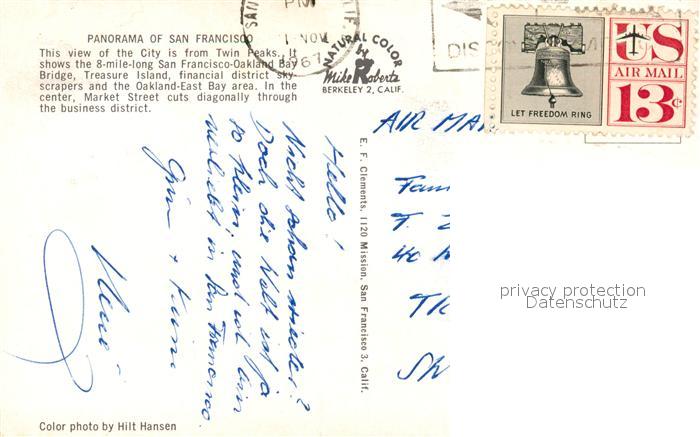 PANORAMA OF SAN FRANCISCO
This view of the City is from Twin Peaks. It
shows the 8-mile-long San Francisco-Oakland Bay
Bridge, Treasure Island, financial district sky-
scrapers and the Oakland-East Bay area. In the
center, Market Street cuts diagonally through
the business district.
SAN
PM
1 NOV
1967
CALIF
NATURAL COLOR
by
Mike Roberts
BERKELEY 2, CALIF.
DIS
LET FREEDOM RING
US
AIR MAIL
13c
AIR MA
Fam
F.
40
Hello!
Nicht schon wieder?
Doch die Welt ist ja
so klein, und ich bin
in San Francisco.
E. F. Clements, 1120 Mission, San Francisco 3, Calif.
privacy protection
Datenschutz
Color photo by Hilt Hansen